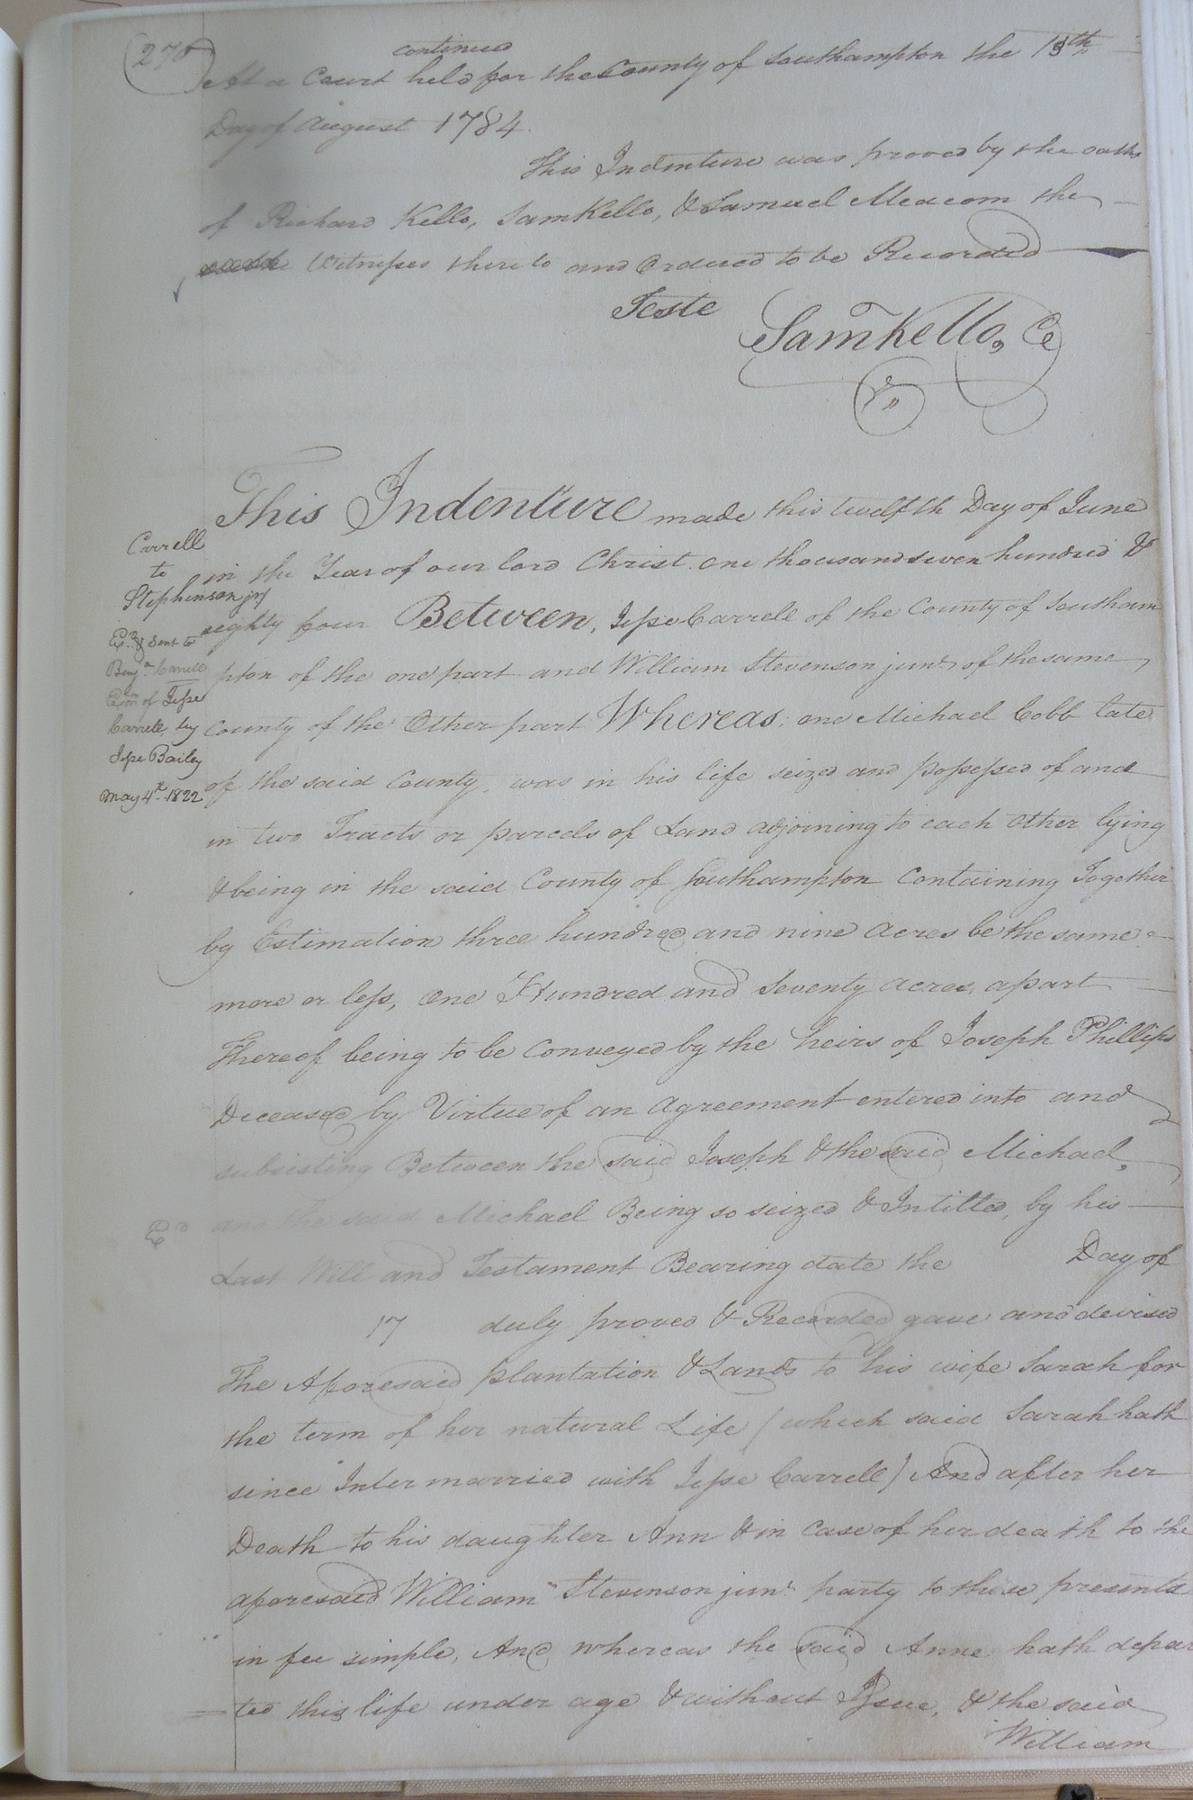 270
continued
At a Court held for the County of Southampton the 13th
Day of August 1784.
This Indenture was proved by the oaths
of Richard Kello, Sam Kello, & Samuel Meacom the
Witnesses thereto and Ordered to be Recorded
Teste
Saml Kello, Ce
This Indenture made this twelfth Day of June
in the Year of our lord Christ one thousand seven hundred &
eighty four Between, Jesse Carrell of the County of Southam
pton of the one part and William Stevenson junr of the same
County of the Other part Whereas, one Michael Cobb late
of the said County, was in his life seized and possessed of and
in two Tracts or parcels of Land adjoining to each other lying
& being in the said County of Southampton Containing Together
by Estimation three hundred and nine acres be the same
more or less, One Hundred and Seventy acres, apart
Thereof being to be Conveyed by the heirs of Joseph Phillips
Deceased by Virtue of an Agreement entered into and
subsisting Between the said Joseph & the said Michael,
and the said Michael Being so seized & Intitled, by his
Last Will and Testament Bearing date the Day of
17 duly proved & Recorded gave and devised
The Aforesaid plantation & Lands to his wife Sarah for
the term of her natural Life (which said Sarah hath
since Inter married with Jesse Carrell) And after her
Death to his daughter Ann & in Case of her death to the
aforesaid William Stevenson junr party to these presents
in fee simple, And whereas the said Anne hath depar
ted this life under age & without Issue, & the said
William
Carrell
to
Stephenson jr
Exd & Sent to
Benja Carrell
Exor of Jesse
Carrell, by
Jesse Bailey
May 4th 1822
Exd